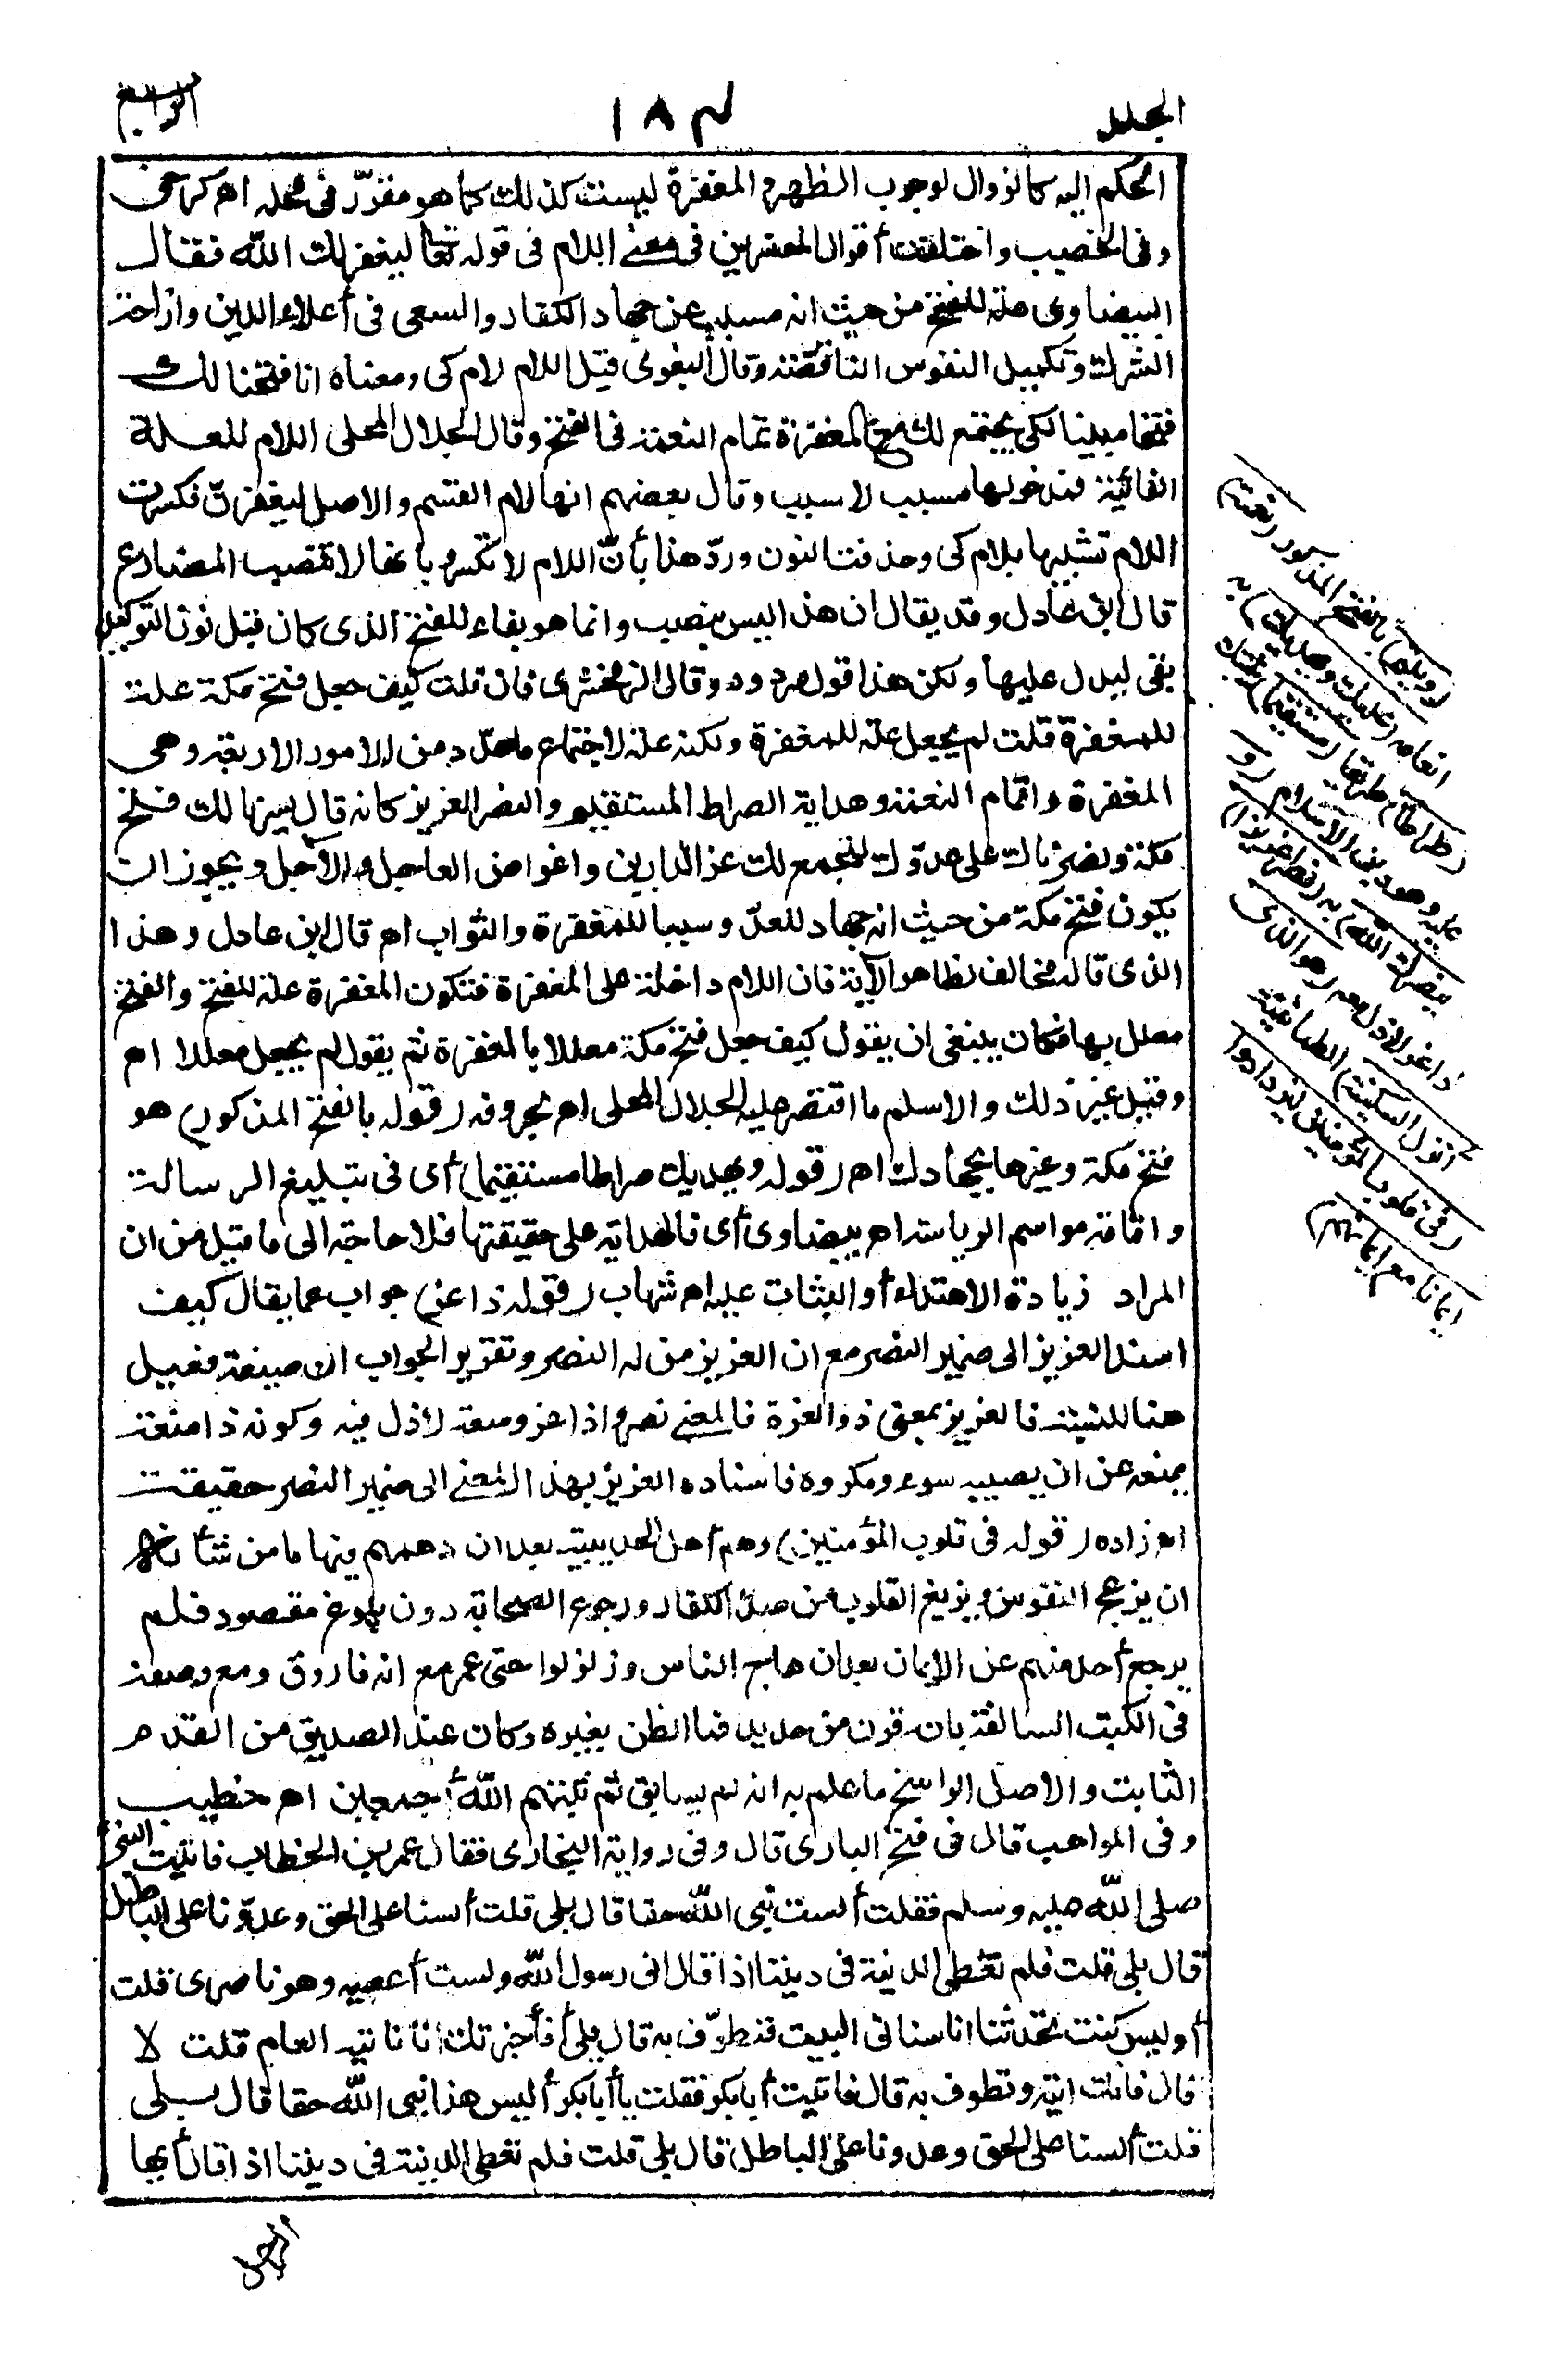 المجلد
١٨٣
الرابع
الحكم اليه كالزوال لوجوب الظهر والمغفرة ليست كذلك كما هو مقرّر فى محله اه كرخى
وفى الخصيب واختلفت أقوال المفسرين فى معنى اللام فى قوله تعالى ليغفر لك الله فقال
البيضاوى علة للفتح من حيث انه مسبب عن جهاد الكفار والسعى فى أعلاء الدين وازاحة
الشرك وتكميل النفوس الناقصة وقال البغوى قيل اللام لام كى ومعناه انا فتحنا لك
فتحا مبينا لكى يجتمع لك مع المغفرة تمام النعمة فى الفتح وقال الجلال المحلى اللام للعلة
الغائية فمدخولها مسبب لا سبب وقال بعضهم انها لام القسم والاصل ليغفرنّ فكسرت
اللام تشبيها بلام كى وحذفت النون وردّ هذا بأنّ اللام لا تكسر وبأنها لا تنصب المضارع
قال ابن عادل وقد يقال ان هذا ليس بنصب وانما هو بقاء للفتح الذى كان قبل نون التوكيد
بقى ليدل عليها ولكن هذا قول مردود وقال الزمخشرى فان قلت كيف جعل فتح مكة علة
للمغفرة قلت لم يجعل علة للمغفرة ولكنه علة لاجتماع ما عدّد من الامور الاربعة وهى
المغفرة واتمام النعمة وهداية الصراط المستقيم والنصر العزيز كانه قال يسرنا لك فتح
مكة ونصرناك على عدوّك لنجمع لك عز الدارين واغراض العاجل والآجل ويجوز ان
يكون فتح مكة من حيث انه جهاد للعدّو سببا للمغفرة والثواب اه قال ابن عادل وهذا
الذى قاله مخالف لظاهر الآية فان اللام داخلة على المغفرة فتكون المغفرة علة للفتح والفتح
معلل بها فكان ينبغى ان يقول كيف جعل فتح مكة معللا بالمغفرة ثم يقول لم يجعل معللا اه
وقيل غير ذلك والاسلم ما اقتصر عليه الجلال المحلى اه بحروفه (قوله بالفتح المذكور) هو
فتح مكة وغيرها بجهادك اه (قوله ويهديك صراطا مستقيما) أى فى تبليغ الرسالة
واقامة مواسم الرياسة اه بيضاوى أى فالهداية على حقيقتها فلا حاجة الى ما قيل من ان
المراد زيادة الاهتداء أو الثبات عليه اه شهاب (قوله ذا عز) جواب عما يقال كيف
اسند العزيز الى ضمير النصر مع ان العزيز من له النصر وتقرير الجواب ان صيغة فعيل
هنا للنسبة فالعزيز بمعنى ذو العزة فالمعنى نصرا ذا عز ومنعة لا ذل فيه وكونه ذا منعة
يمنعه عن ان يصيبه سوء ومكروه فاسناده العزيز بهذا المعنى الى ضمير النصر حقيقة
اه زاده (قوله فى قلوب المؤمنين) وهم أهل الحديبية بعد ان دهمهم فيها ما من شأنه
ان يزعج النفوس ويزيغ القلوب من صد الكفار ورجوع الصحابة دون بلوغ مقصود فلم
يرجع أحد منهم عن الايمان بعد ان هاج الناس وزلزلوا حتى عمر مع انه فاروق ومع وصفه
فى الكتب السالفة بانه قرن من حديد فما الظن بغيره وكان عند الصديق من القدم
الثابت والاصل الراسخ ما علم به انه لم يسابق ثم ثبتهم الله أجمعين اه خطيب
وفى المواهب قال فى فتح البارى قال وفى رواية البخارى فقال عمر بن الخطاب فاتيت النبى
صلى الله عليه وسلم فقلت ألست نبى الله حقا قال بلى قلت ألسنا على الحق وعدوّنا على الباطل
قال بلى قلت فلم نعطى الدنية فى ديننا اذا قال انى رسول الله ولست أعصيه وهو ناصرى قلت
أوليس كنت تحدثنا انا سناتى البيت فنطوّف به قال بلى أفأخبرتك انا ناتيه العام قلت لا
قال فانك اتيه وتطوف به قال فاتيت أبا بكر فقلت يا أبا بكر أليس هذا نبى الله حقا قال بلى
قلت ألسنا على الحق وعدونا على الباطل قال بلى قلت فلم نعطى الدنية فى ديننا اذا قال أيها
الرجل
(ويتم) بالفتح المذكور (نعمته)
انعامه (عليك ويهديك) به
(صراطا) طريقا (مستقيما) يثبتك
عليه وهو دين الاسلام (و
ينصرك الله) به (نصرا عزيزا)
ذا عز لا ذل معه (هو الذى
أنزل السكينة) الطمأنينة
(فى قلوب المؤمنين ليزدادوا
ايمانا مع ايمانهم)